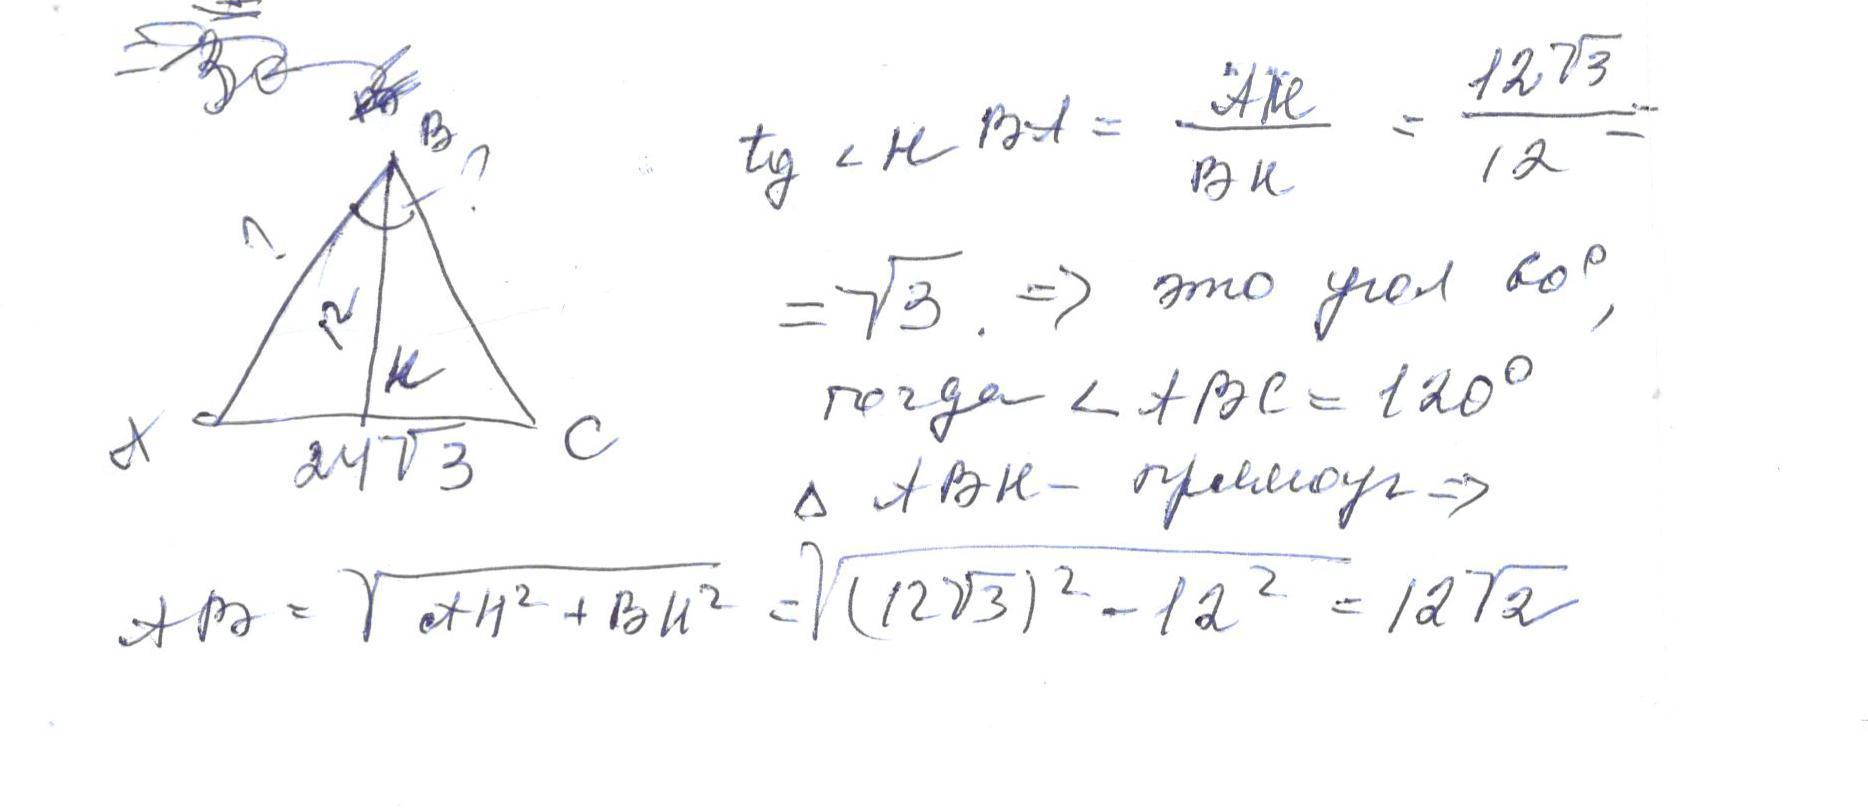 B
?
?
12
H
A
24√3
C
tg ∠HBA = AH/BH = 12√3/12 =
= √3. => это угол 60°,
тогда ∠ABC = 120°
Δ ABH - прямоуг =>
AB = √(AH² + BH²) = √((12√3)² - 12²) = 12√2